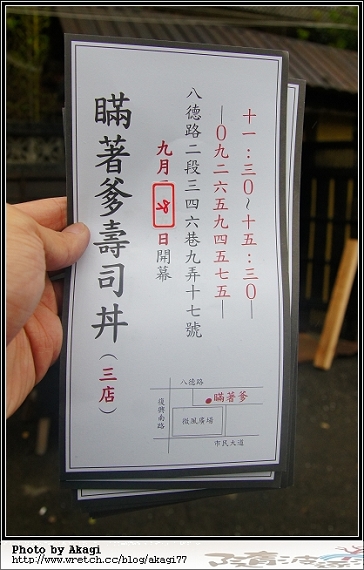 十一:三〇~十五:三〇
一〇九二六五九四五七五一
八德路二段三四六巷九弄十七號
九月 28 日開幕
瞞著爹壽司丼(三店)
八德路
瞞著爹
復興南路
微風廣場
市民大道
Photo by Akagi
http://www.wretch.cc/blog/akagi77